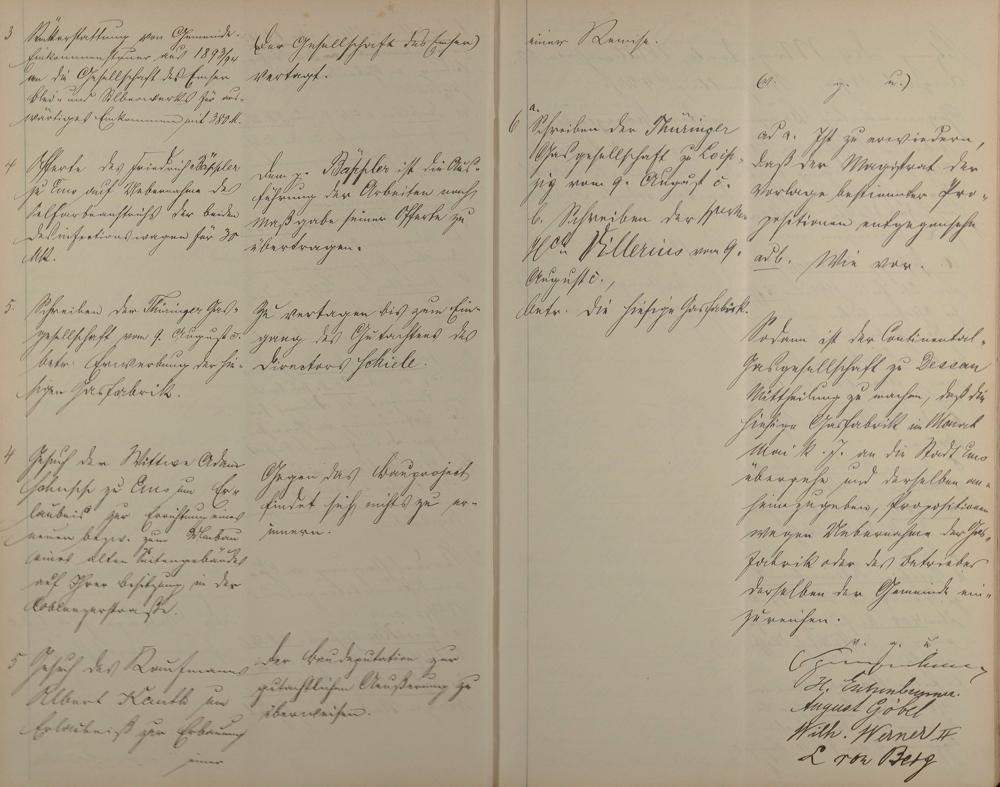 3 Rückerstattung von Gemeinde-
Einkommensteuer aus 1893/94
an die Gesellschaft des Emser
Blei- und Silberwerks für aus-
wärtiges Einkommen mit 380 M.
(Der Gesellschaft des Emser)
vertagt.
4 Offerte des Friedrich Bäppler
zu Ems auf Uebernahme des
Oelfarbenanstrichs der beiden
Desinfectionswagen für 30
Mk.
Dem p. Bäppler ist die Aus-
führung der Arbeiten nach
Maßgabe seiner Offerte zu
übertragen.
5. Schreiben der Thüringer Gas-
gesellschaft vom 9. August c.
betr. Erwerbung der hie-
sigen Gasfabrik.
Zu vertagen bis zum Ein-
gang des Gutachtens des
Directors Schiele.
4 Gesuch der Wittwe Adam
zu Ems um Er-
laubnis zur Errichtung eines
neuen bezw. zum Umbau
eines alten Seitengebäudes
auf Ihrer Besitzung in der
Coblenzerstraße.
Gegen das Bauproject
findet sich nichts zu er-
innern.
5 Gesuch des Kaufmanns
Albert Kauth um
Erlaubniß zur Erbauung
einer
Der Baudeputation zur
gutachtlichen Aeußerung zu
überweisen.
einer Remise.
(v. g. u.)
6 a. Schreiben der Thüringer
Gasgesellschaft zu Leip-
zig vom 9. August c.
b. Schreiben der
Villerius vom 9.
August c.,
betr. die hiesige Gasfabrik.
ad a. Ist zu erwiedern,
daß der Magistrat der
Vorlage bestimmter Pro-
positionen entgegensehe
ad b. Wie vor.
Sodann ist der Continental-
Gasgesellschaft zu Dessau
Mittheilung zu machen, daß die
hiesige Gasfabrik im Monat
Mai k. J. an die Stadt Ems
übergehe und derselben an-
heimzugeben, Propositionen
wegen Uebernahme der Gas-
fabrik oder des Betriebes
derselben der Gemeinde ein-
zureichen.
v. g. u.
H.
August Göbel
Wilh. Werner II
L von Berg